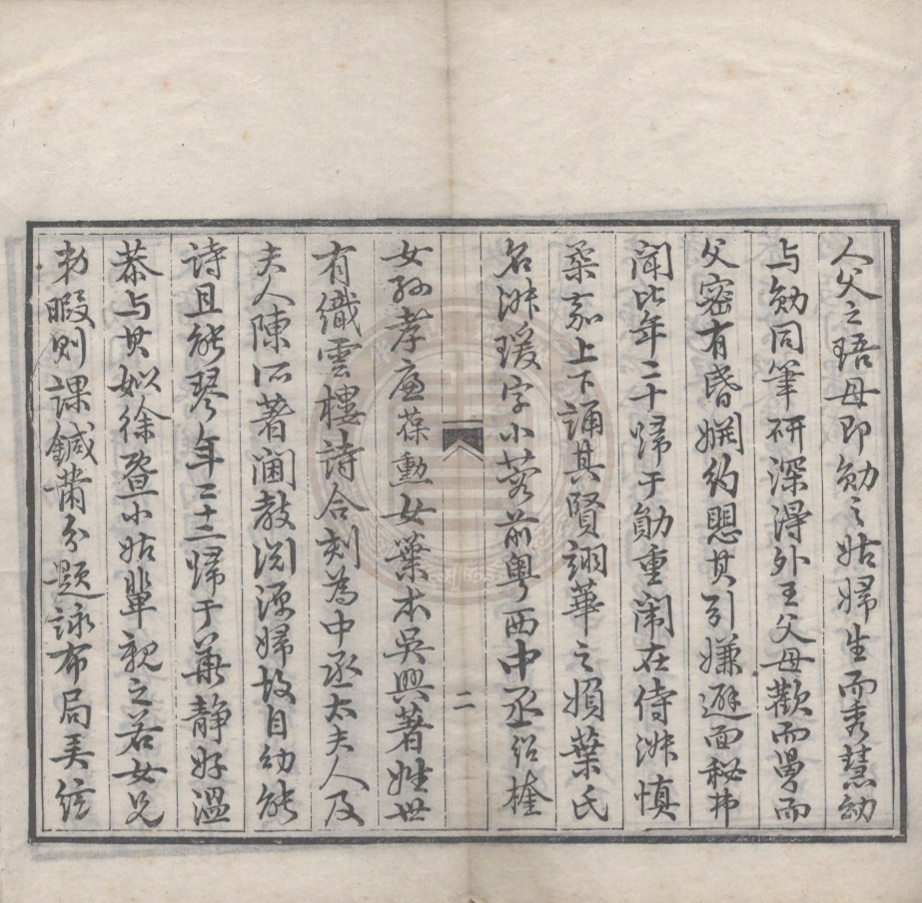 人父之琣母即勉之姑婦生而秀慧幼
与勉同筆研深得外王父母歡而舅而
父密有昏婣約愳其引嫌避面秘弗
聞比年二十歸于勛重闈在侍淑慎
柔嘉上下誦其賢翊華之嬪葉氏
名淑瑗字小蓉前粤西中丞紹楏
女孫孝廉葆勳女葉本吳興著姓世
有織雲樓詩合刻為中丞太夫人及
夫人陳所著閫教淵源婦故自幼能
詩且能琴年二十三歸于華静好溫
恭与其姒徐暨小姑輩親之若女兄
弟暇則課鍼黹分題詠布局美絃
二